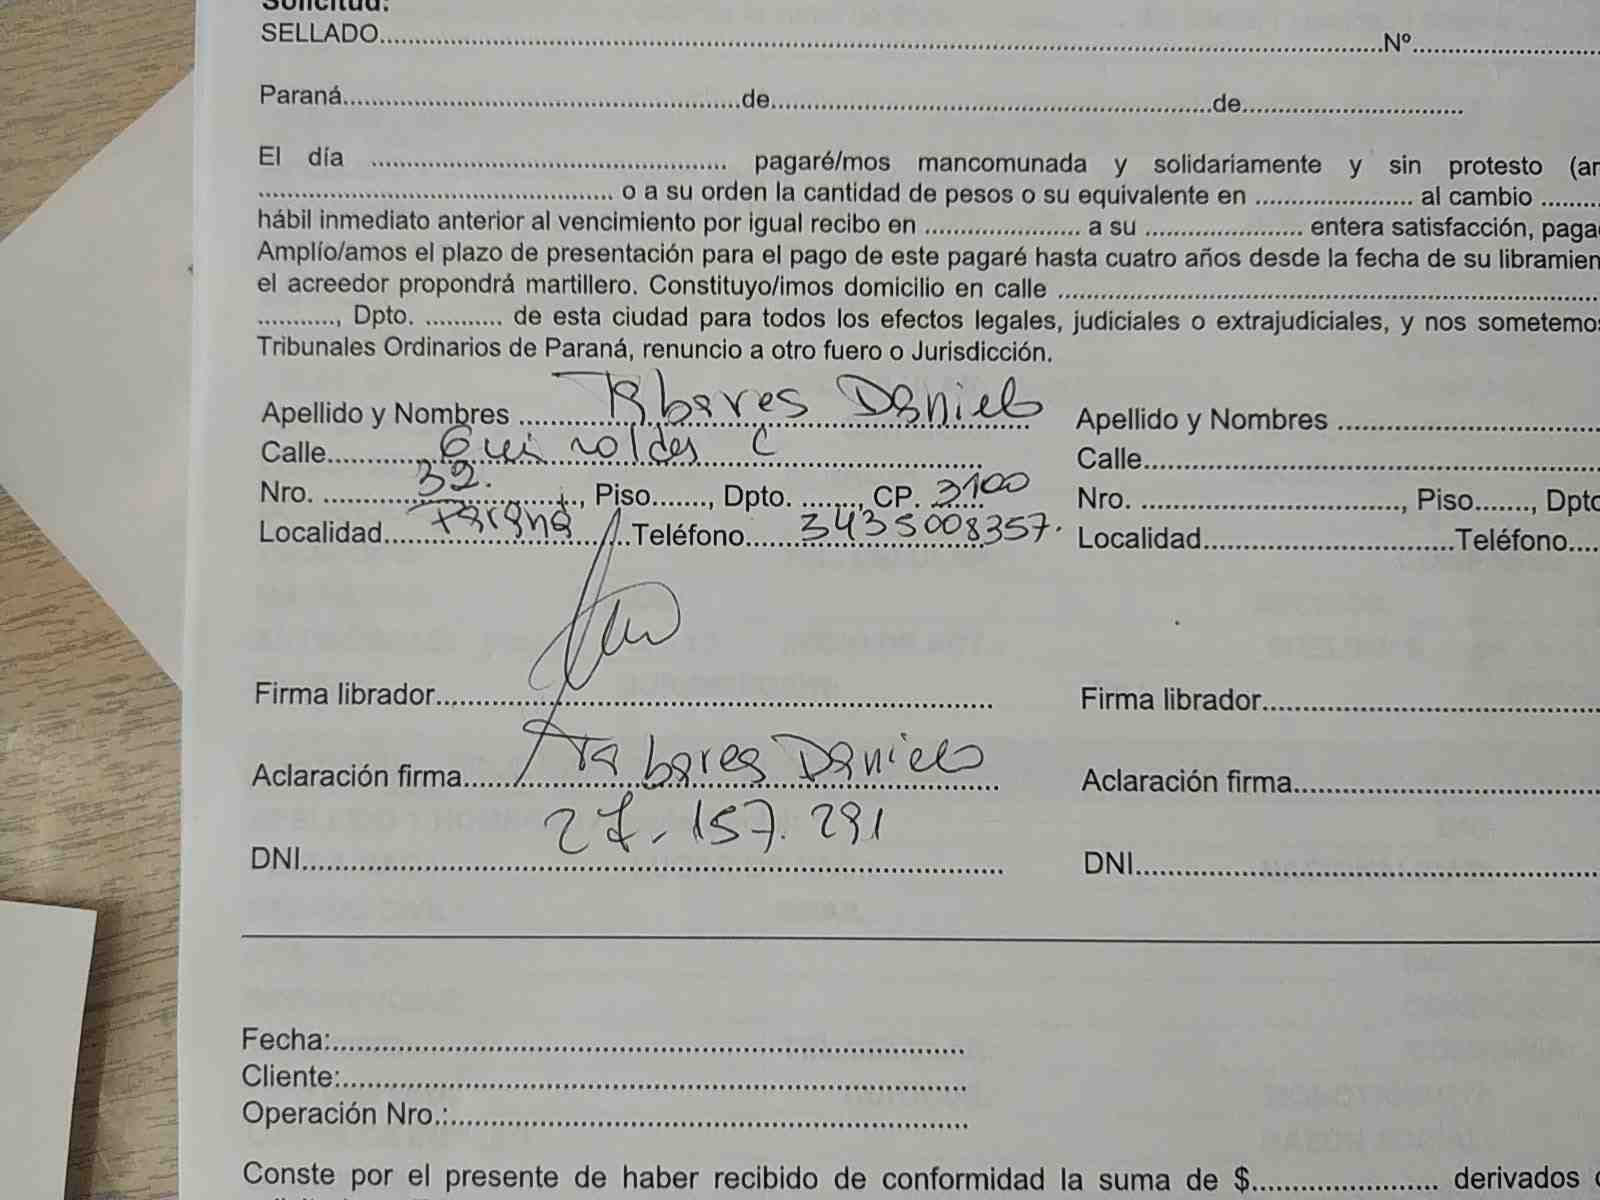 Solicitud:
SELLADO..........Nº..........
Paraná..........de..........de..........
El día .......... pagaré/mos mancomunada y solidariamente y sin protesto (ar
.......... o a su orden la cantidad de pesos o su equivalente en .......... al cambio ..........
hábil inmediato anterior al vencimiento por igual recibo en .......... a su .......... entera satisfacción, paga
Amplío/amos el plazo de presentación para el pago de este pagaré hasta cuatro años desde la fecha de su libramien
el acreedor propondrá martillero. Constituyo/imos domicilio en calle ..........
.........., Dpto. .......... de esta ciudad para todos los efectos legales, judiciales o extrajudiciales, y nos sometemos
Tribunales Ordinarios de Paraná, renuncio a otro fuero o Jurisdicción.
Apellido y Nombres Tabares Daniel Apellido y Nombres ..........
Calle.......... Calle..........
Nro. 32., Piso......., Dpto. ......., CP. 3100 Nro. .........., Piso......., Dpto
Localidad Paraná Teléfono 3435008357. Localidad..........Teléfono....
Firma librador.......... Firma librador..........
Aclaración firma Tabares Daniel Aclaración firma..........
DNI 27.157.291 DNI..........
Fecha:..........
Cliente:..........
Operación Nro.:..........
Conste por el presente de haber recibido de conformidad la suma de $.......... derivados